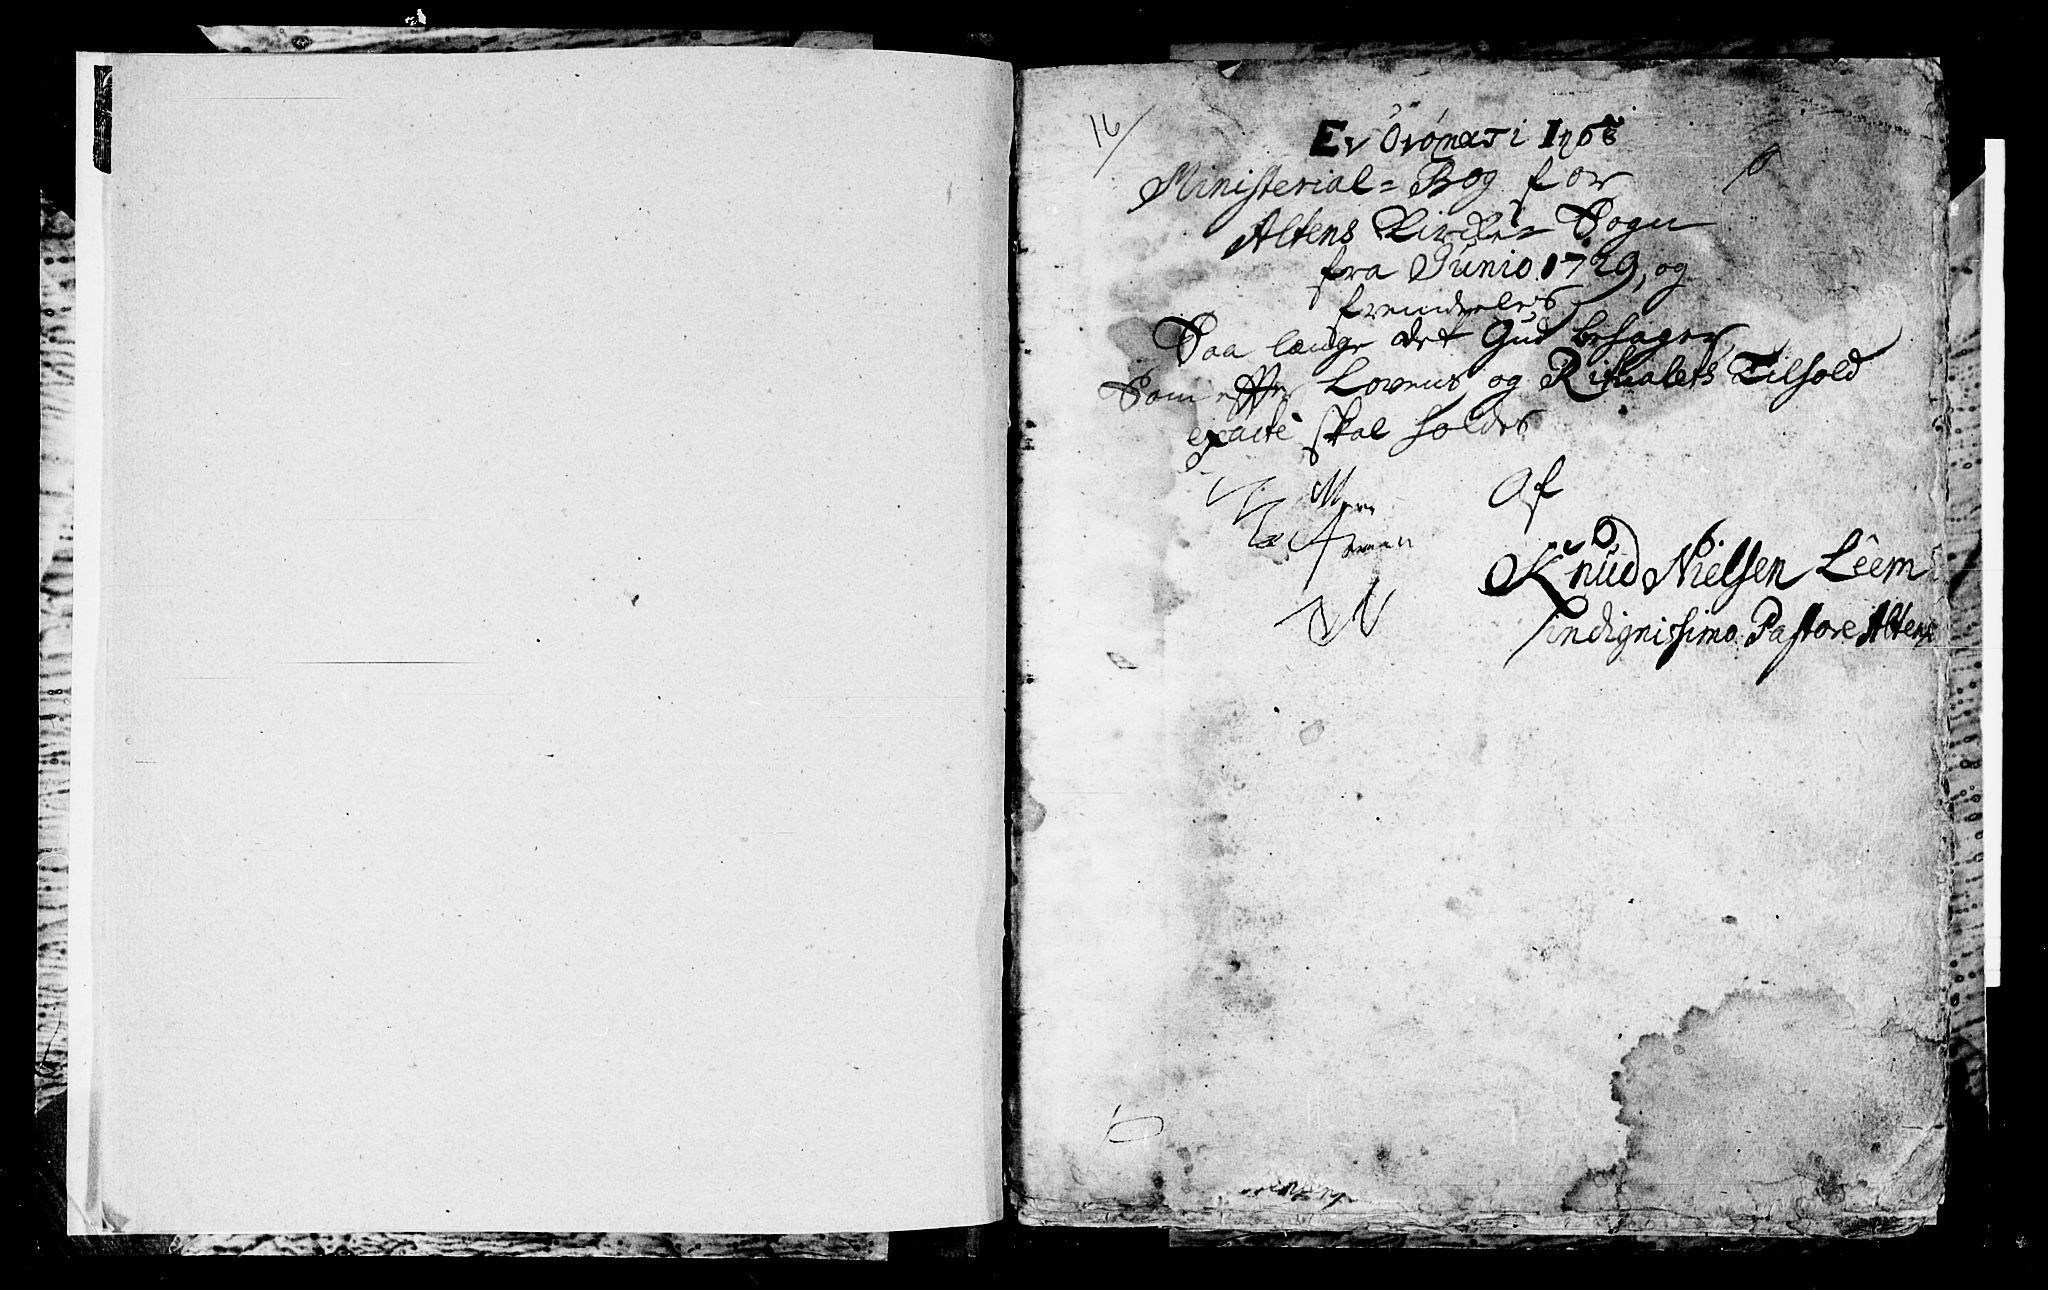 16/
Ministerial-Bog for
Altens Kircke-Sogn
fra Junio 1729, og
fremdeles
Saa længe det Gud behager,
Som efter Lovens og Ritualets Tilhold
exacte skal holdes
Af
Knud Nielsen Leem
indignissimo Pastore Altens